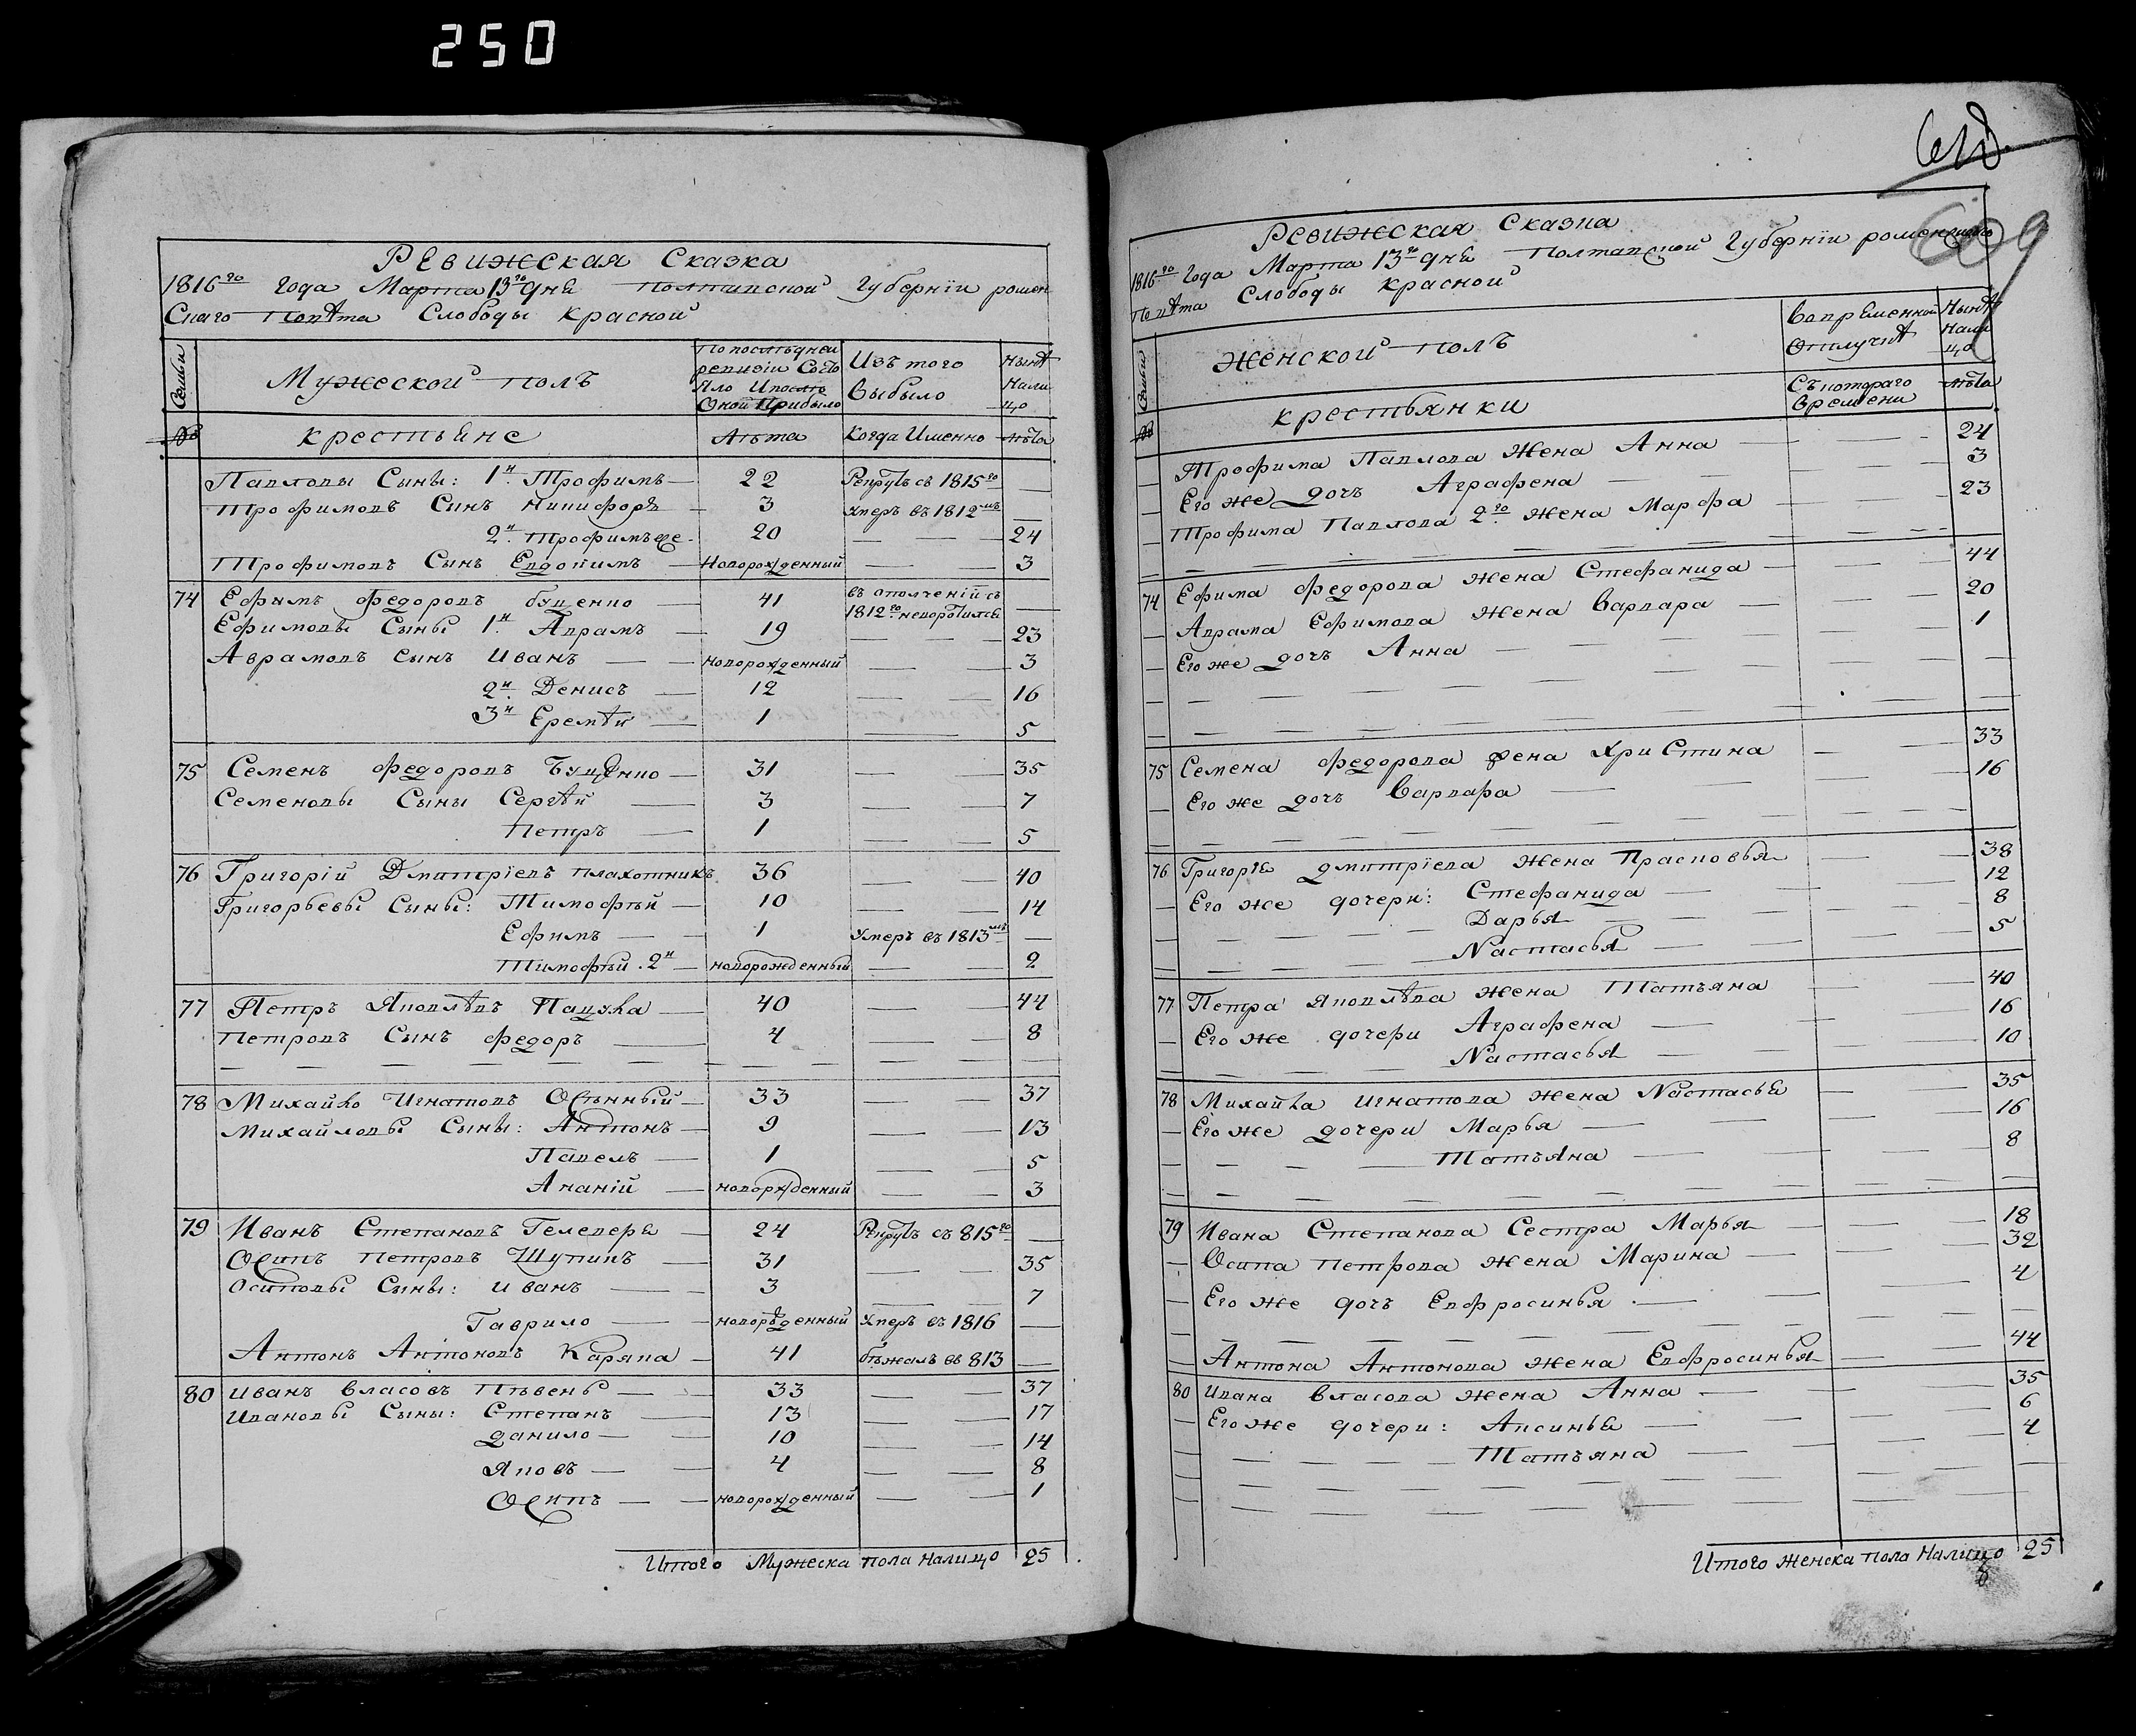 250
Ревижская Сказка
1816го Года Марта 13го дня Полтавской Губернїи ромен
Скаго Повѣта Слободы Красной
Семьи
Мужеской полъ
По последней
ревизїи Состо
Яло И после
Оной Прибыло
Изъ того
Выбыло
Нынѣ
Нали
цо
№
крестьяне
Лѣта
Когда Именно
лѣта
Павловы Сыны: 1й Трофимъ 22 Рекрутъ съ 1815го
Трофимовъ Сынъ Никифоръ 3 Умеръ въ 1812мъ
2й Трофимъ же 20 24
Трофимовъ Сынъ Евдокимъ Новорожденный 3
74 Ефимъ Федоровъ буценко 41 въ ополченїи съ 1812го неворотился
Ефимовы Сыны 1й Аврамъ 19 23
Аврамовъ сынъ Иванъ новорожденный 3
2й Денисъ 12 16
3й Еремѣй 1 5
75 Семенъ Федоровъ Буценко 31 35
Семеновы Сыны Сергѣй 3 7
Петръ 1 5
76 Григорїй Дмитрїевъ плахотникъ 36 40
Григорьевы Сыны: Тимофѣй 10 14
Ефимъ 1 Умеръ въ 1813мъ
Тимофѣй 2й новорожденный 2
77 Петръ Яковлѣвъ Пацука 40 44
Петровъ Сынъ Федоръ 4 8
78 Михайло Игнатовъ Осѣнный 33 37
Михайловы Сыны: Антонъ 9 13
Павелъ 1 5
Ананїй новорожденный 3
79 Иванъ Степановъ Телевере 24 Рекрутъ съ 815го
Осипъ Петровъ Щупикъ 31 35
Осиповы Сыны: Иванъ 3 7
Гаврило новорожденный Умеръ въ 1816
Антонъ Антоновъ Каряка 41 бѣжалъ въ 813
80 Иванъ власовъ Пѣвень 33 37
Ивановы Сыны: Степанъ 13 17
данило 10 14
Яковъ 4 8
Осипъ новорожденный 1
Итого Мужеска пола налицо 25
609
Ревижская Сказка
1816го Года Марта 13го дня Полтавской Губернїи роменскаго
Повѣта Слободы Красной
Семьи
Женской полъ
Вовременной
Отлучкѣ
Нынѣ
Нали
цо
№
крестьянки
Съкотораго
времени
лѣта
Трофима Павлова Жена Анна 24
Его же дочь Аграфена 3
Трофима Павлова 2го жена Марфа 23
74 Ефима Федорова жена Стефанида 44
Аврама Ефимова жена Варвара 20
Его же дочь Анна 1
75 Семена Федорова жена Христина 33
Его же дочь Варвара 16
76 Григорїя дмитрїева жена Прасковья 38
Его же дочери: Стефанида 12
Дарья 8
Настасья 5
77 Петра Яковлѣва жена Татьяна 40
Его же дочери Аграфена 16
Настасья 10
78 Михайла Игнатова жена Настасье 35
Его же дочери Марья 16
Татьяна 8
79 Ивана Степанова Сестра Марья 18
Осипа Петрова жена Марина 32
Его же дочь Евфросинья 4
Антона Антонова жена Евфросинья 44
80 Ивана власова жена Анна 35
Его же дочери: Аксинье 6
Татьяна 4
Итого Женска пола Налицо 25